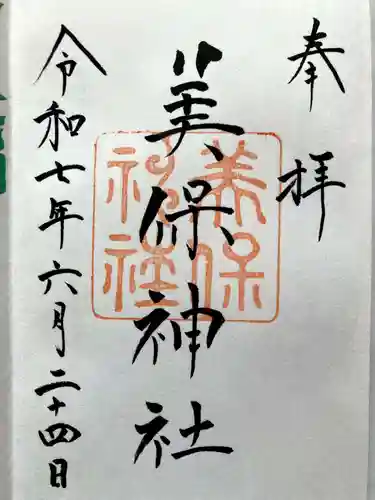 奉拝
美保神社
美保神社
令和七年六月二十四日